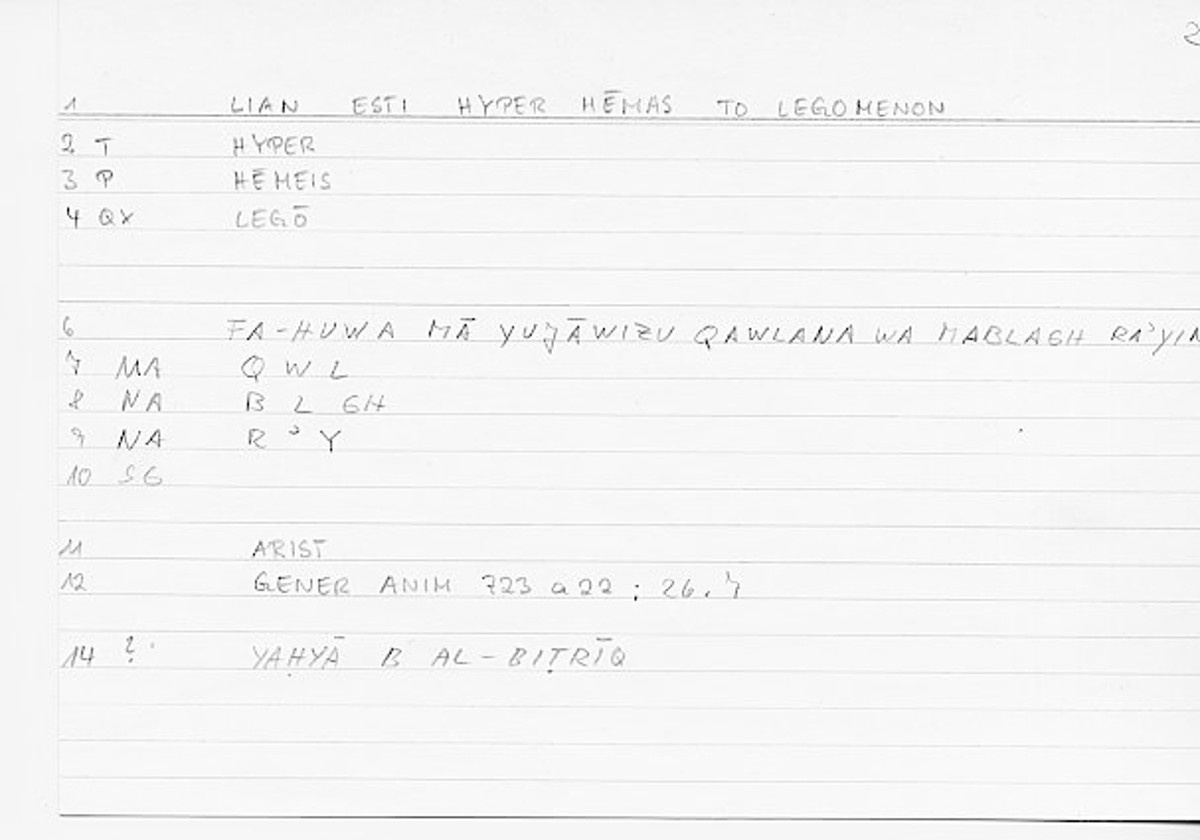 2
1 LIAN ESTI HYPER HĒMAS TO LEGOMENON
2 T HYPER
3 P HĒMEIS
4 QX LEGŌ
6 FA-HUWA MĀ YUǦĀWIZU QAWLANA WA MABLAGH RAʾYIN
7 MA Q W L
8 NA B L GH
9 NA R ʾ Y
10 SG
11 ARIST
12 GENER ANIM 723 a 22 ; 26.7
14 ? YAḤYĀ B AL-BIṬRĪQ